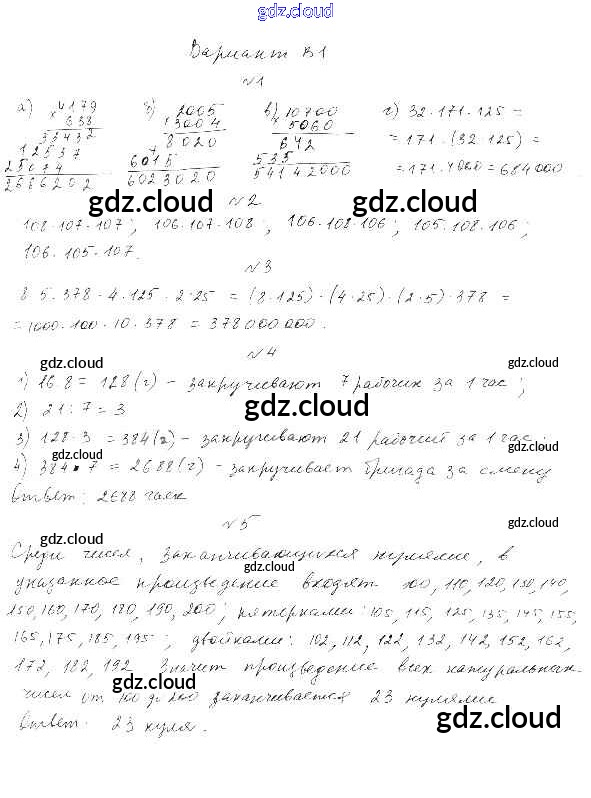 gdz.cloud
Вариант В1
№1
а) 4179 б) 2005 в) 10700 г) 32·171·125 =
× 633 × 3004 × 5060 = 171·(32·125) =
8020 642 = 171·4000 = 684000
12537 6015 535
25074 6023020 54142000
gdz.cloud gdz.cloud
№2
108·107·107; 106·107·108; 106·108·106; 105·108·106;
106·105·107.
№3
8·5·378·4·125·2·25 = (8·125)·(4·25)·(2·5)·378 =
= 1000·100·10·378 = 378000000.
№4
gdz.cloud gdz.cloud
1) 16·8 = 128 (г) - закручивают 7 рабочих за 1 час;
2) 21:7 = 3
gdz.cloud
3) 128·3 = 384 (г) - закручивают 21 рабочий за 1 час;
gdz.cloud gdz.cloud
4) 384·7 = 2688 (г) - закручивает бригада за смену
Ответ: 2688 гаек
№5
gdz.cloud
Среди чисел, заканчивающихся нулями, в
gdz.cloud
указанное произведение входят 100, 110, 120, 130, 140,
150, 160, 170, 180, 190, 200; пятерками: 105, 115, 125, 135, 145, 155,
165, 175, 185, 195; двойками: 102, 112, 122, 132, 142, 152, 162,
172, 182, 192. Значит произведение всех натуральных
gdz.cloud
чисел от 100 до 200 заканчивается 23 нулями
gdz.cloud
Ответ: 23 нуля.